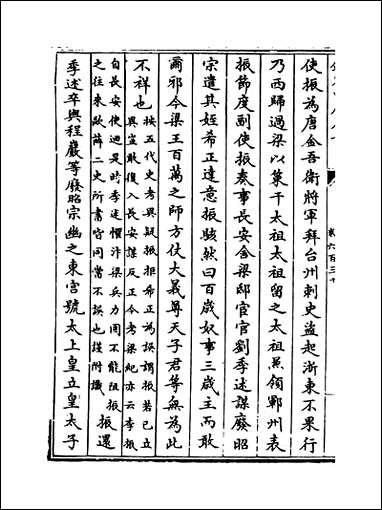 卷六百三十
使振為唐金吾衛將軍拜台州刺史盜起浙東不果行
乃西歸過梁以策干太祖太祖留之太祖兼領鄆州表
振節度副使振奏事長安舍梁邸宦官劉季述謀廢昭
宗遣其姪希正達意振駭然曰百歲奴事三歲主而敢
爾邪今梁王百萬之師方仗大義尊天子君等無為此
不祥也
按五代史考異疑振拒希正為誤謂振若已立
異豈敢復入長安謀反正今考梁紀亦云李振
自長安使迴是時季述懼汴梁兵力固不能阻振
之往來歐薛二史所書官同當不誤也謹附識
振還
季述卒與程巖等廢昭宗幽之東宮號太上皇立皇太子